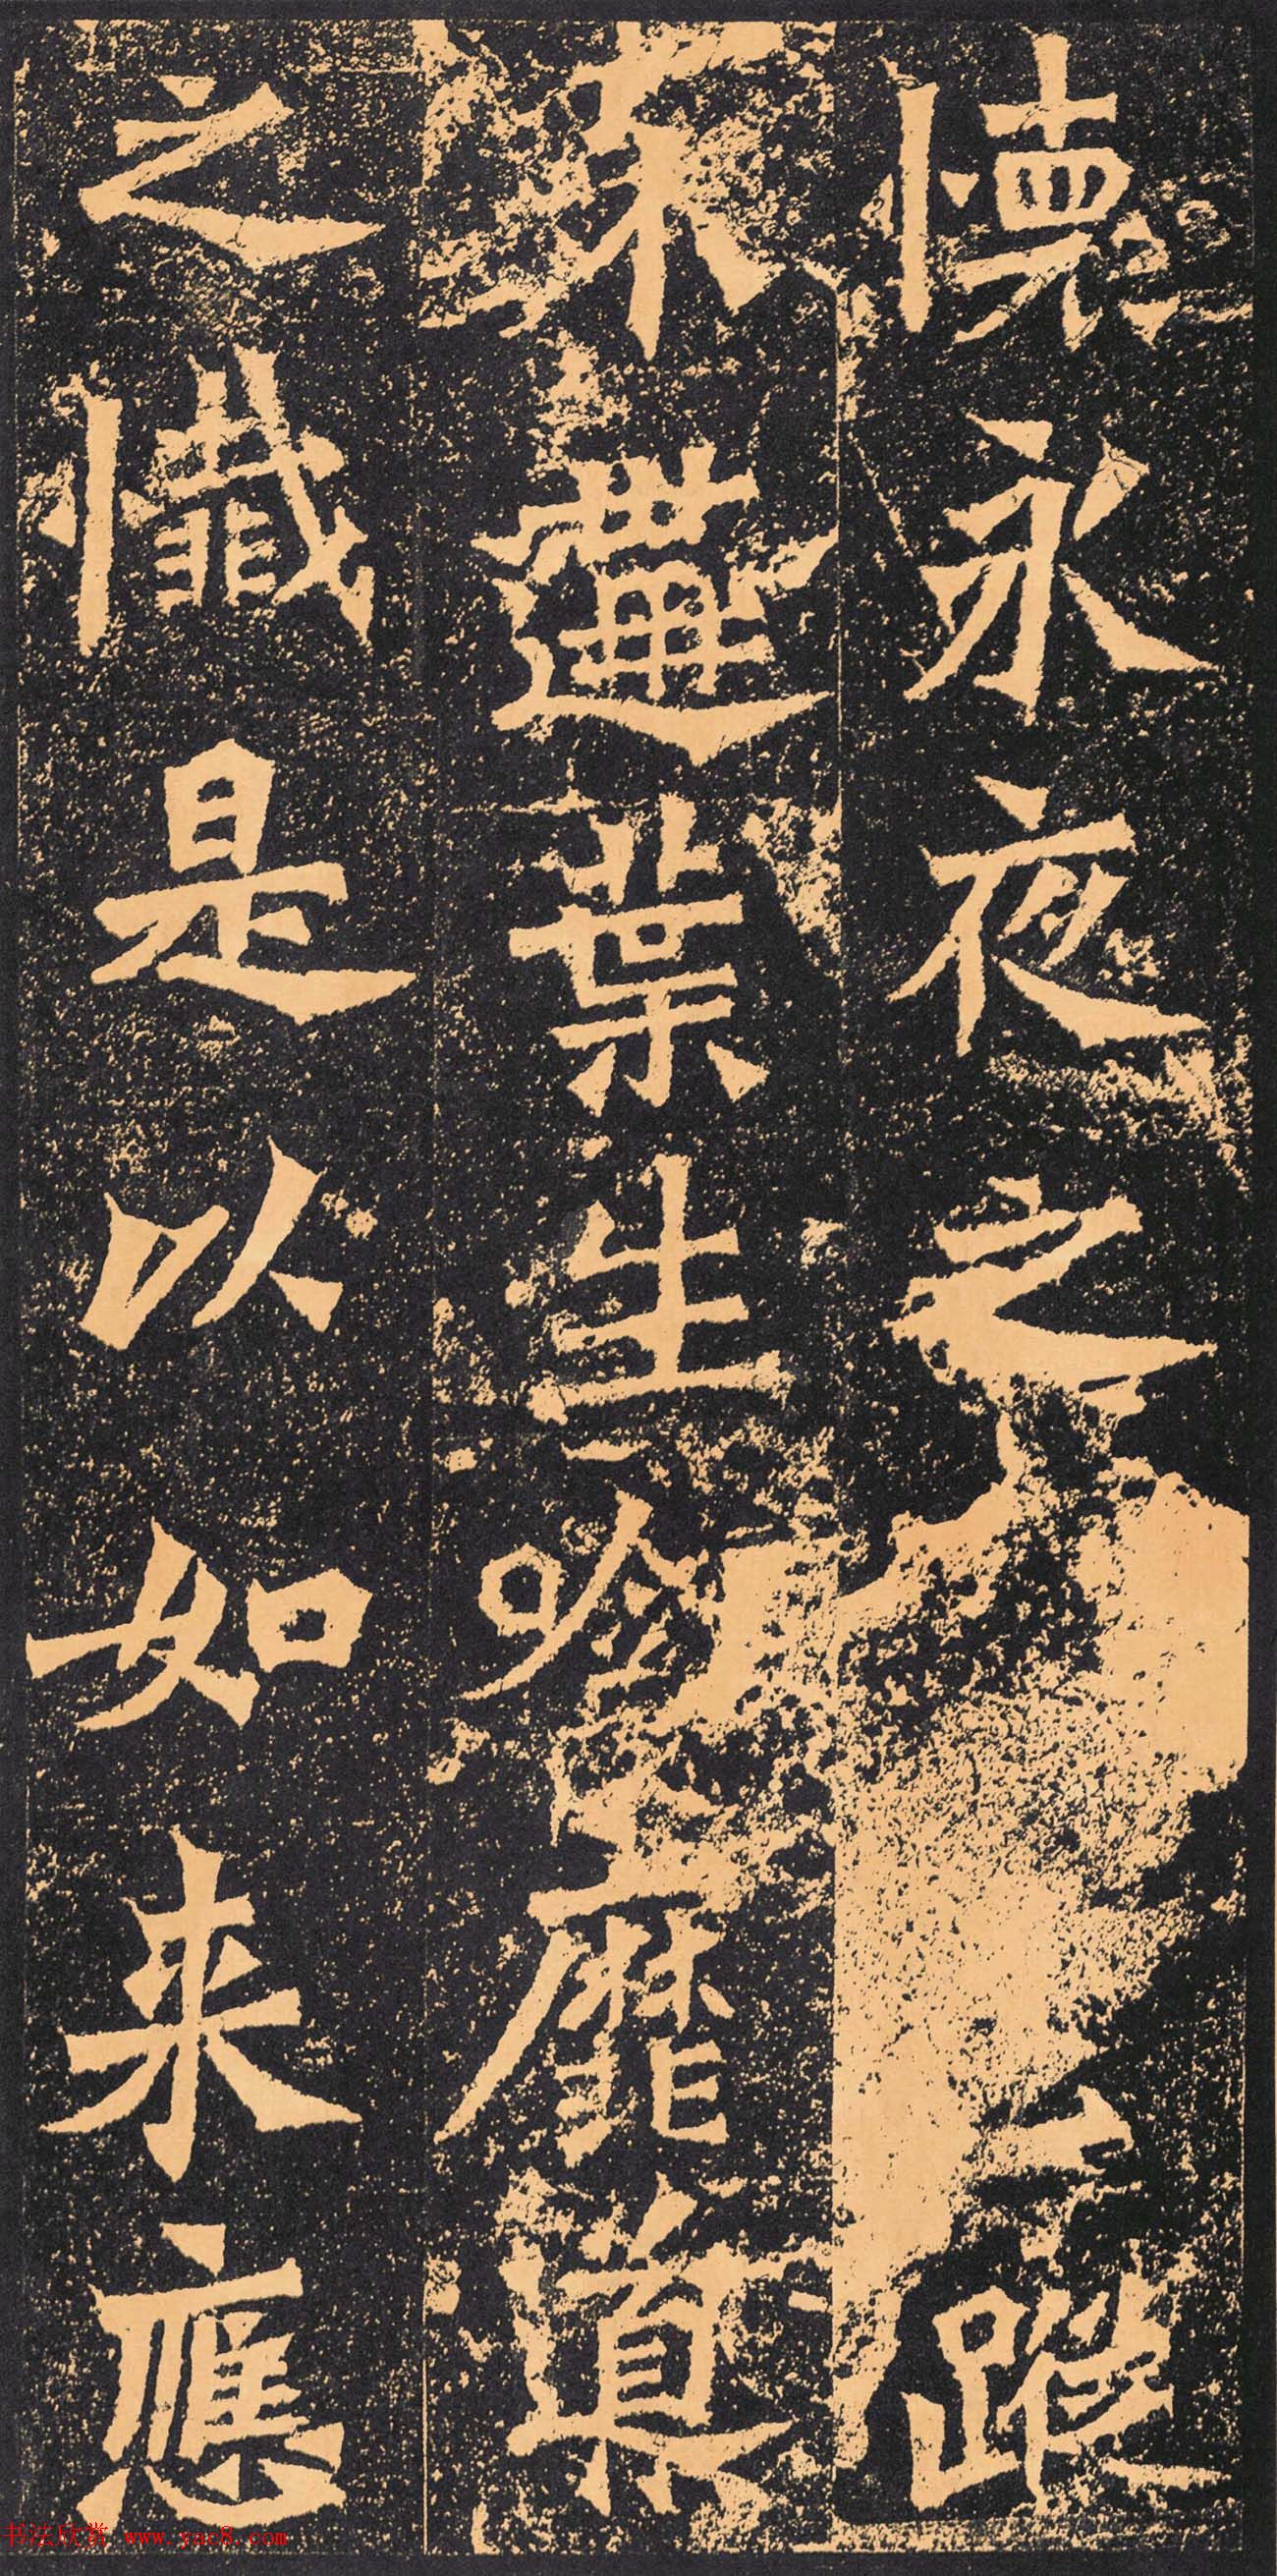 懷永夜之蹤
葉生唅靡導
之懺是以如來應
书法欣赏 www.yac8.com